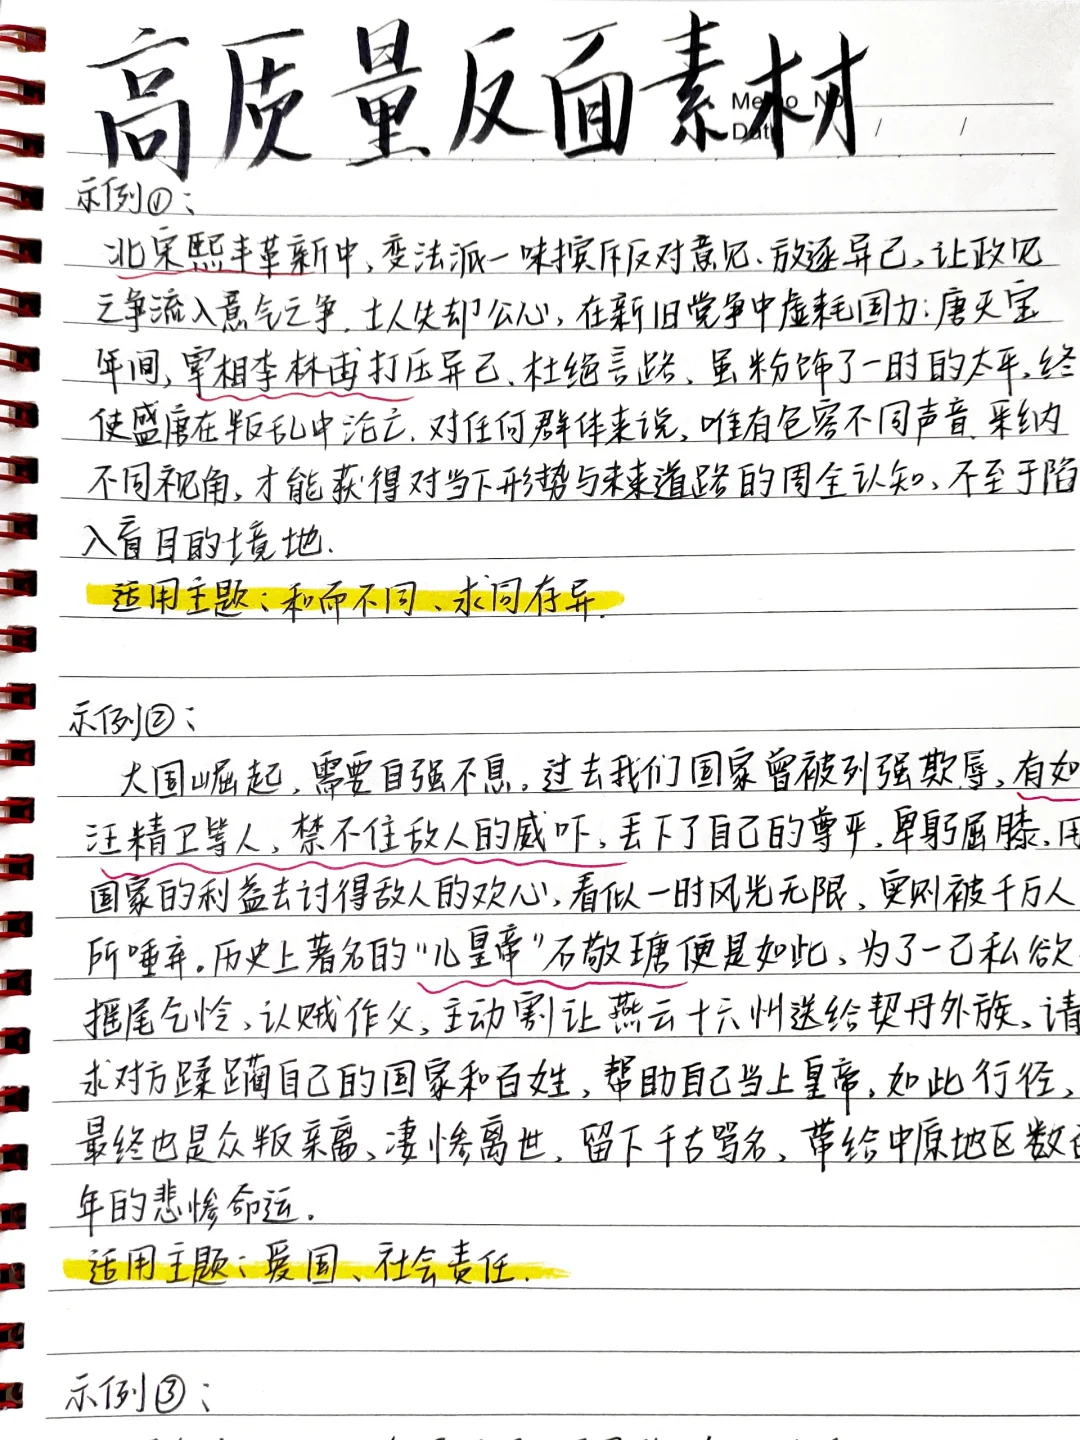 高质量反面素材
Memo No.
Date / /
示例①：
北宋熙丰革新中，变法派一味摈斥反对意见、放逐异己，让政见
之争流入意气之争，士人失却公心，在新旧党争中虚耗国力；唐天宝
年间，宰相李林甫打压异己、杜绝言路，虽粉饰了一时的太平，终
使盛唐在叛乱中沦亡．对任何群体来说，唯有包容不同声音、采纳
不同视角，才能获得对当下形势与未来道路的周全认知，不至于陷
入盲目的境地．
适用主题：和而不同、求同存异．
示例②：
大国崛起，需要自强不息。过去我们国家曾被列强欺辱，有如
汪精卫等人，禁不住敌人的威吓，丢下了自己的尊严，卑躬屈膝，用
国家的利益去讨得敌人的欢心，看似一时风光无限，实则被千万人
所唾弃。历史上著名的“儿皇帝”石敬瑭便是如此，为了一己私欲
摇尾乞怜，认贼作父，主动割让燕云十六州送给契丹外族，请
求对方蹂躏自己的国家和百姓，帮助自己当上皇帝，如此行径，
最终也是众叛亲离、凄惨离世，留下千古骂名，带给中原地区数百
年的悲惨命运．
适用主题：爱国、社会责任．
示例③：